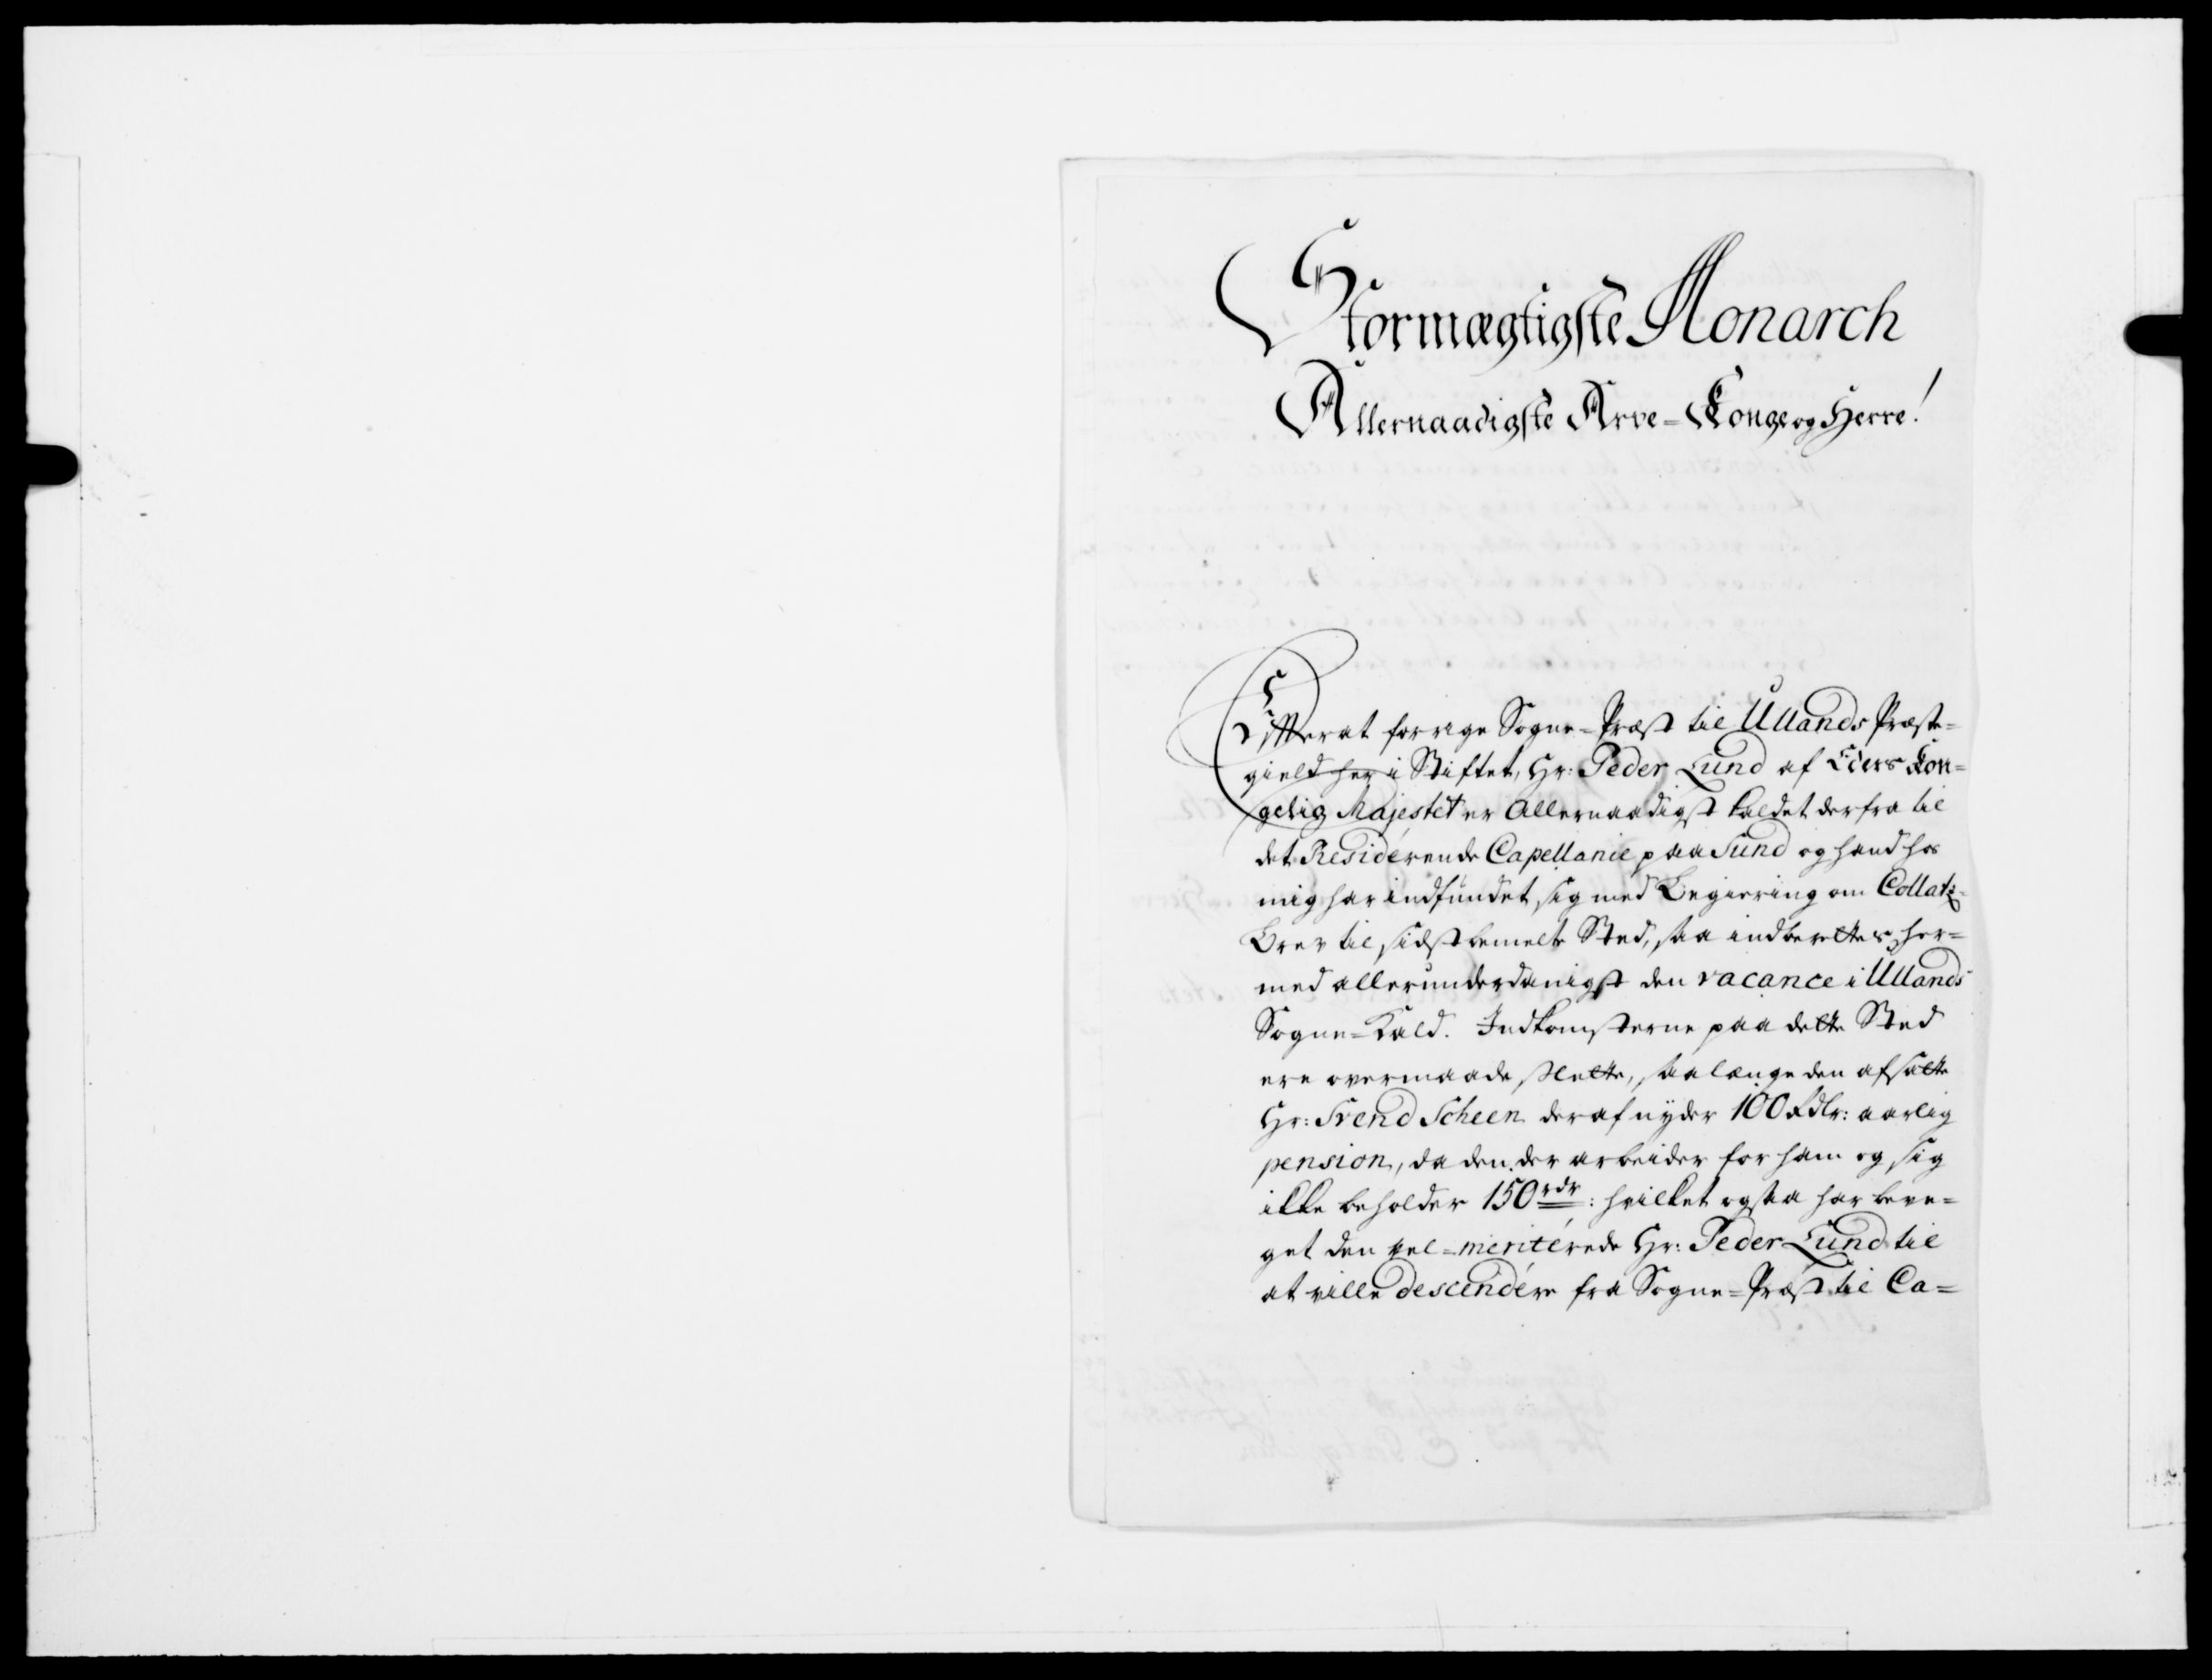 Stormægtigste Monarch
Allernaadigste Arve=Konge og Herre!
Efterat forrige Sogne=Præst til Ullands Præste=
gield her i Stiftet, Hr: Peder Lund af Eders Kon=
gelig Majestet er Allernaadigst kaldet derfra til
det Residérende Capellanie paa Sund og hand hos
mig har indfundet sig med Begiering om Collatz=
Brev til sidstbemelte Sted, saa indberettes her=
med allerunderdanigst den vacance i Ullands
Sogne=Kald. Indkomsterne paa dette Sted
ere overmaade slette, saa længe den afsatte
Hr: Svend Scheen deraf nyder 100 Rdlr: aarlig
pension, da den der arbeider for ham og sig
ikke beholder 150 rdr: hvilket ogsaa har beve=
get den vel=meritérede Hr: Peder Lund til
at ville descendére fra Sogne=Præst til Ca=